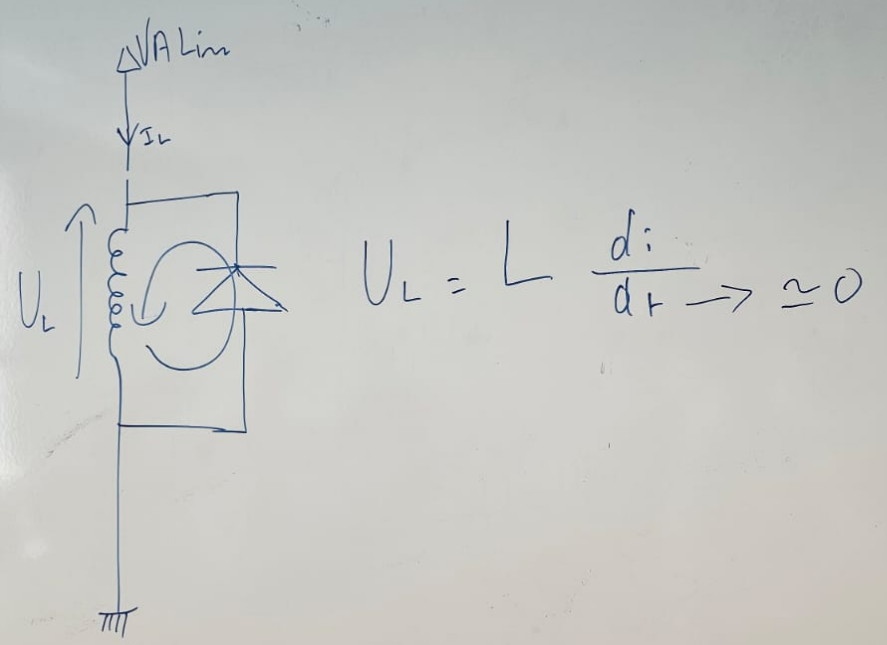 VALim
IL
UL
UL = L di/dt → ≃ 0